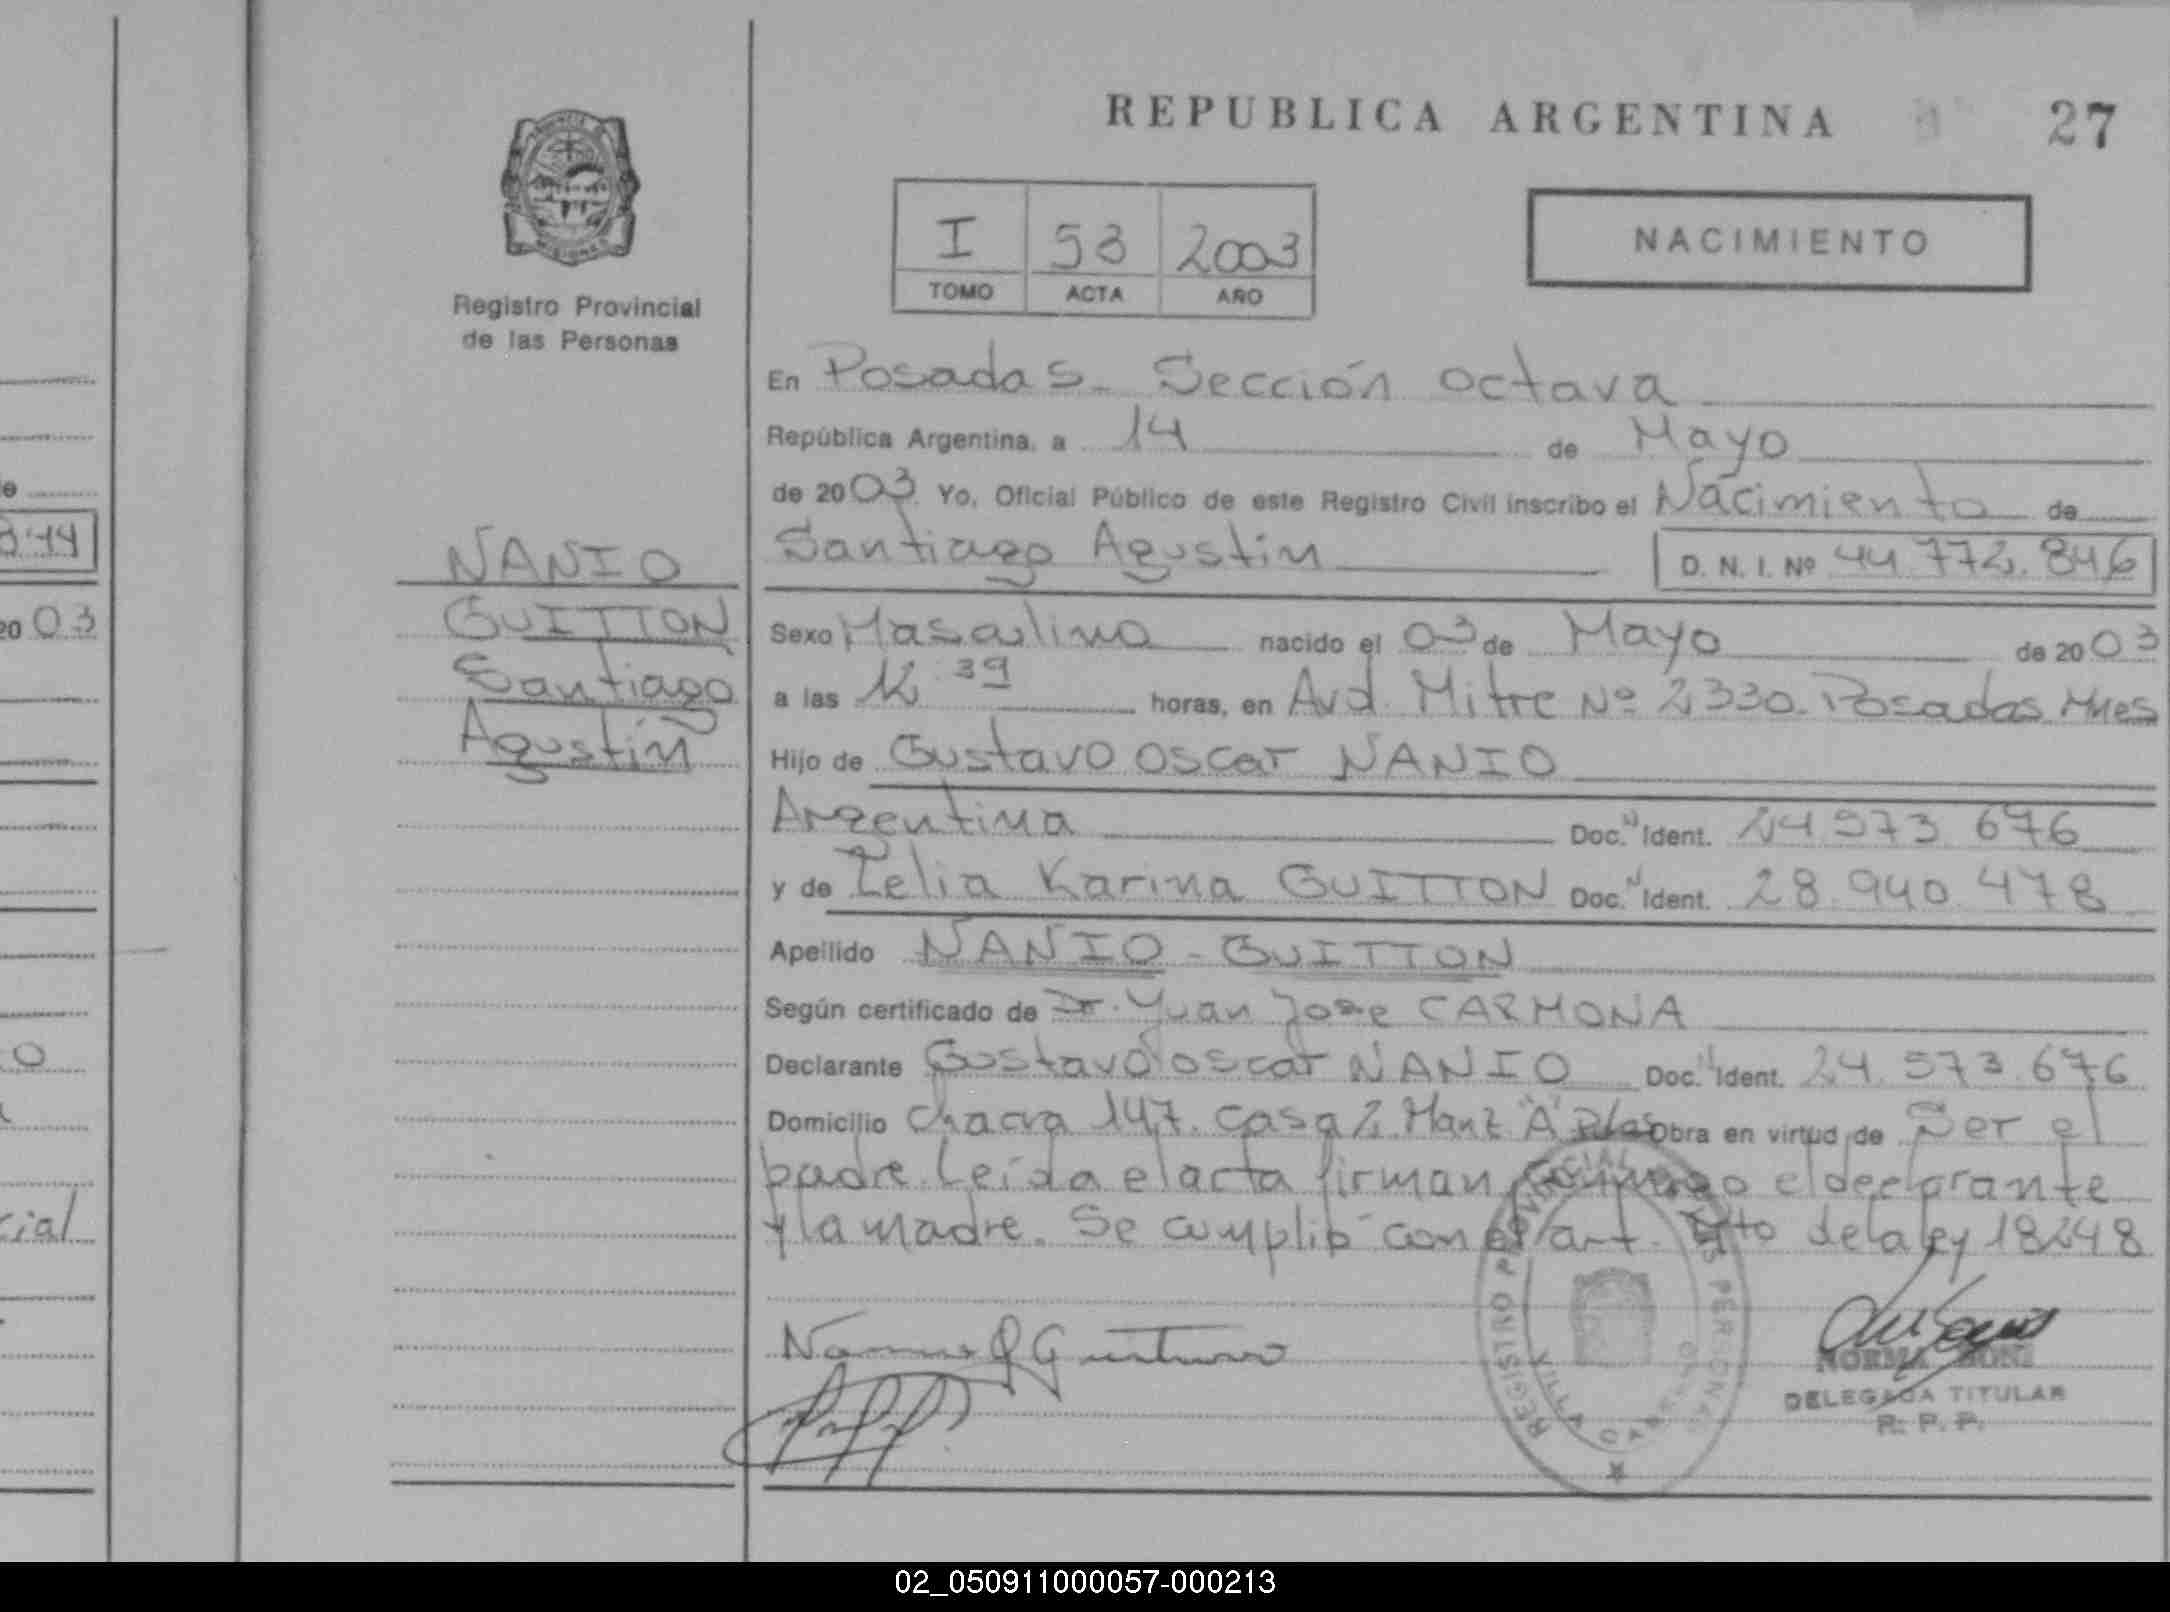 REPUBLICA ARGENTINA 27
I 53 2003
TOMO ACTA AÑO
NACIMIENTO
Registro Provincial
de las Personas
En Posadas - Sección octava
República Argentina, a 14 de Mayo
de 2003 Yo, Oficial Público de este Registro Civil inscribo el Nacimiento de
Santiago Agustin D. N. I. Nº 44 772.846
NANIO
GUITTON
Santiago
Agustín
Sexo Masculino nacido el 03 de Mayo de 2003
a las 12 39 horas, en Avd. Mitre Nº 2330. Posadas Mnes
Hijo de Gustavo oscar NANIO
Argentina Doc. N Ident. 24.573.676
y de Zelia Karina GUITTON Doc. N Ident. 28.940.478
Apellido NANIO - GUITTON
Según certificado de Dr. Juan Jose CARMONA
Declarante Gustavo oscar NANIO Doc. N Ident. 24.573.676
Domicilio chacra 147. casa 2. Manz "A" Pdas Obra en virtud de Ser el
padre. Leída el acta firman conmigo el declarante
y la madre. Se cumplió con el art. 6to de la ley 18248
Nanio O Gustavo
REGISTRO PROVINCIAL DE LAS PERSONAS
VILLA CABELLO
NORMA BONI
DELEGADA TITULAR
R. P. P.
e
844
2003
o
cial
02_050911000057-000213